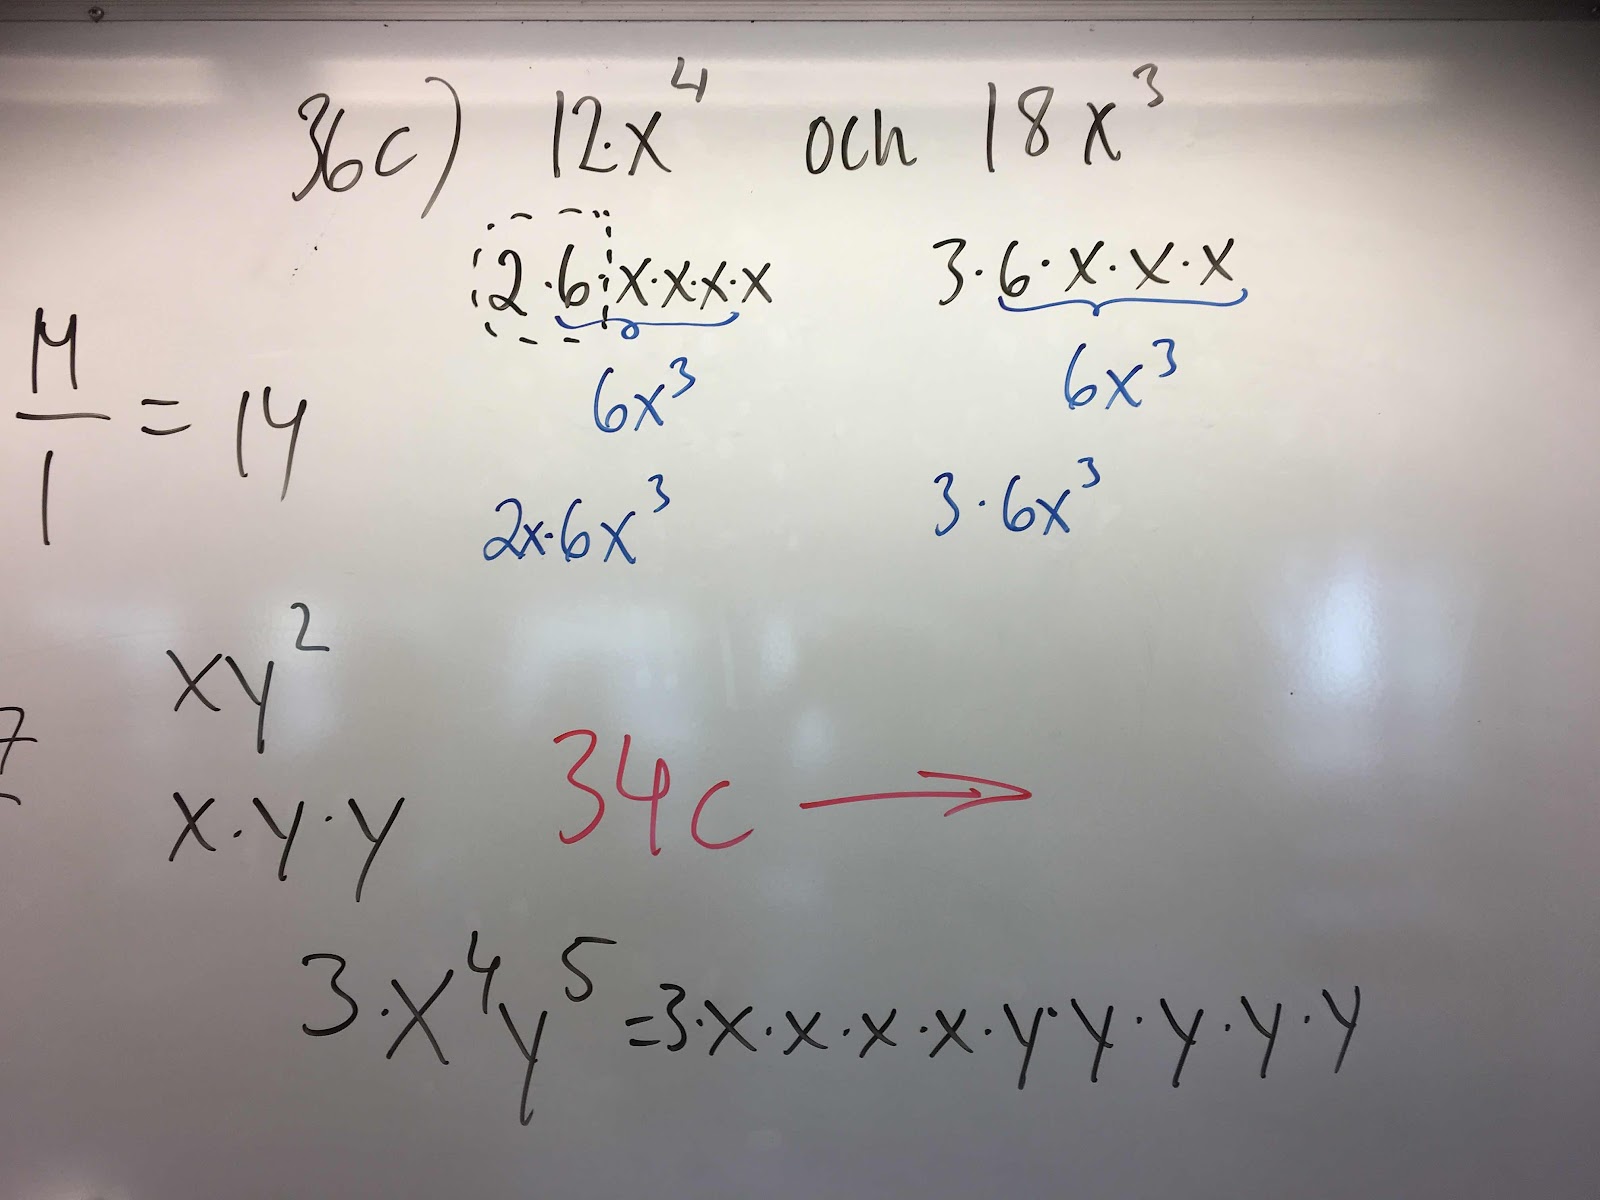 36c) 12·x⁴ och 18x³
2·6·x·x·x·x 3·6·x·x·x
6x³ 6x³
2x·6x³ 3·6x³
14
— = 14
1
xy²
x·y·y
7
34c →
3·x⁴y⁵ =3·x·x·x·x·y·y·y·y·y